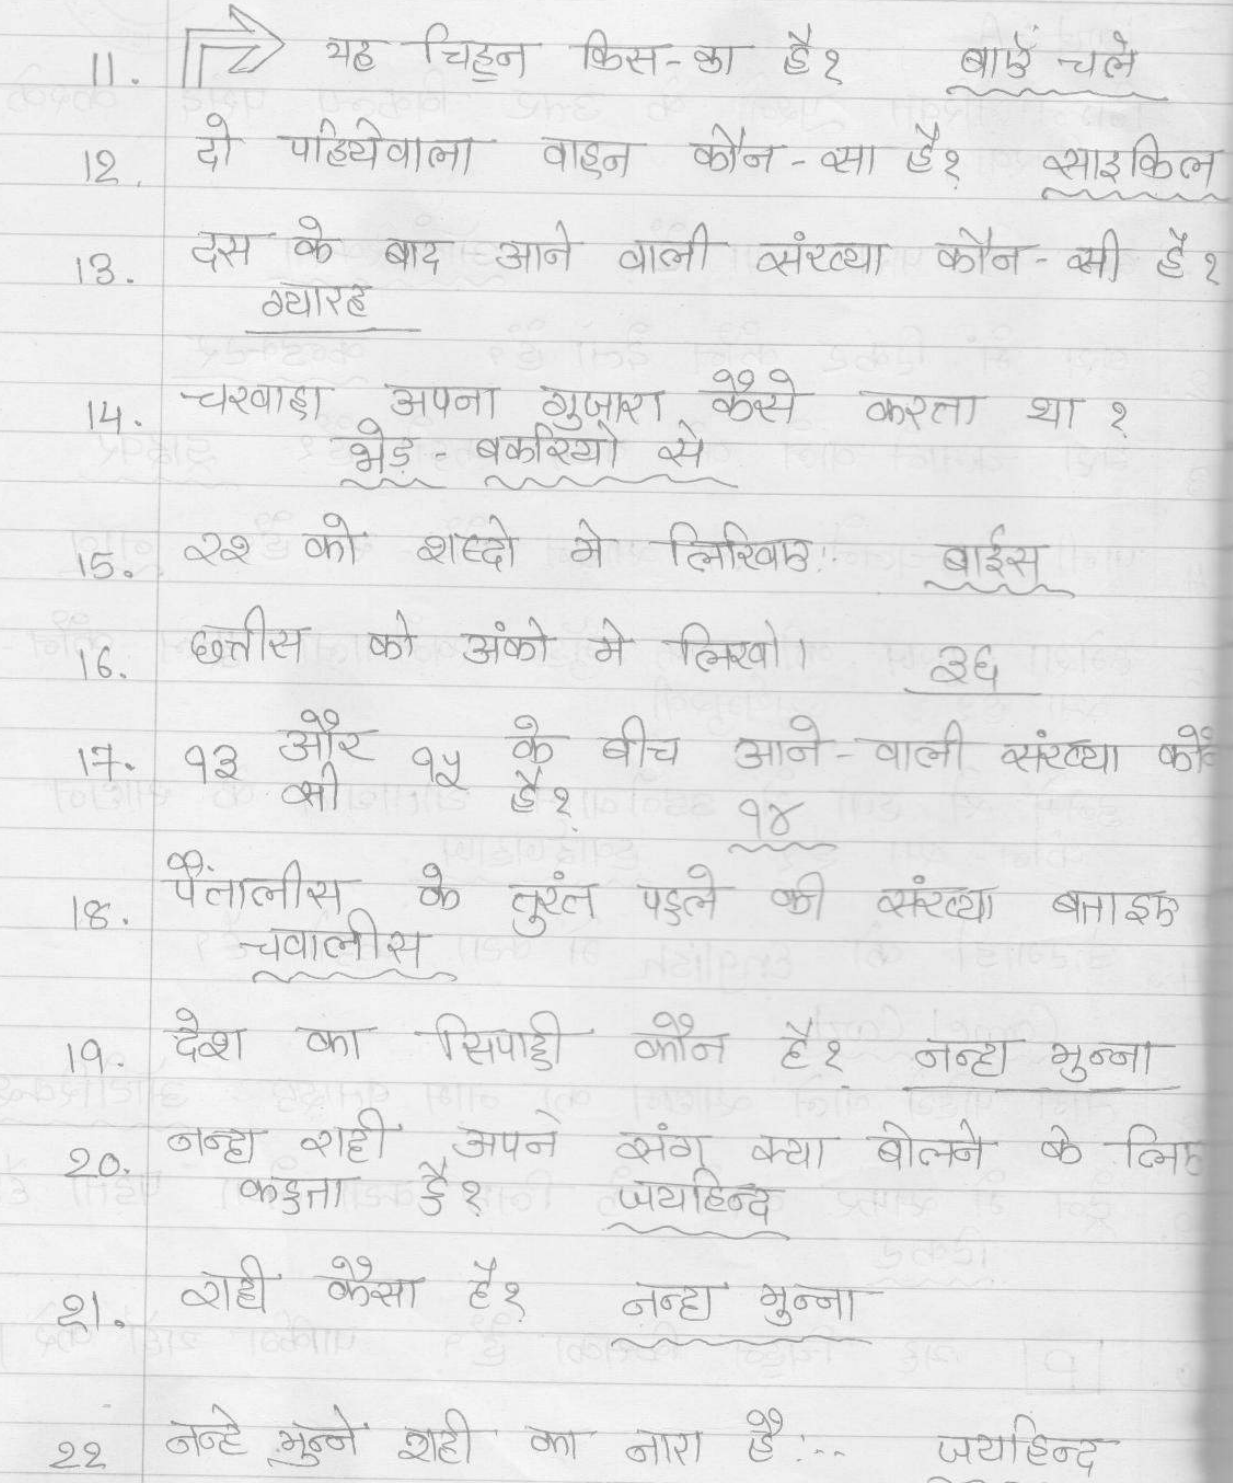 11. यह चिह्न किस-का है? बाएँ चले
12. दो पहियेवाला वाहन कौन-सा है? साइकिल
13. दस के बाद आने वाली संख्या कौन-सी है?
ग्यारह
14. चरवाहा अपना गुजारा कैसे करता था?
भेड़-बकरियो से
15. २२ को शब्दो मे लिखिए:- बाईस
16. छत्तीस को अंको मे लिखो। ३६
17. १३ और १५ के बीच आने-वाली संख्या कौन
सी है? १४
18. पैंतालीस के तुरंत पहले की संख्या बताइए
चवालीस
19. देश का सिपाही कौन है? नन्हा मुन्ना
20. नन्हा राही अपने संग क्या बोलने के लिए
कहता है? जयहिन्द
21. राही कैसा है? नन्हा मुन्ना
22 नन्हे मुन्ने राही का नारा है:-- जयहिन्द